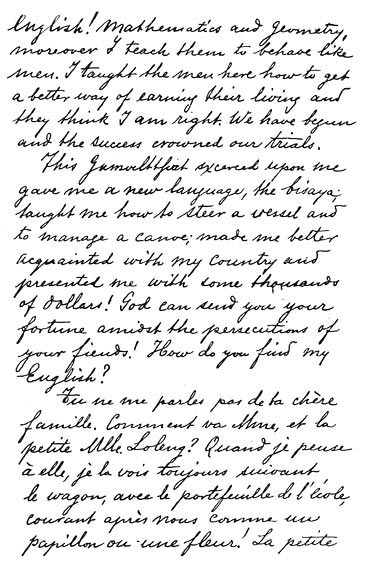 English! Mathematics and Geometry,
moreover I teach them to behave like
men. I taught the men here how to get
a better way of earning their living and
they think I am right. We have begun
and the success crowned our trials.
This excerced upon me
gave me a new language, the bisaya;
taught me how to steer a vessel and
to manage a canoe; made me better
acquainted with my country and
presented me with some thousands
of dollars! God can send you your
fortune amidst the persecutions of
your fiends! How do you find my
English?
Tu ne me parles pas de ta chère
famille. Comment va Mme, et la
petite Mlle. Loleng? Quand je pense
à elle, je la vois toujours suivant
le wagon, avec le portefeuille de l'école,
courant après nous comme un
papillon ou une fleur! La petite